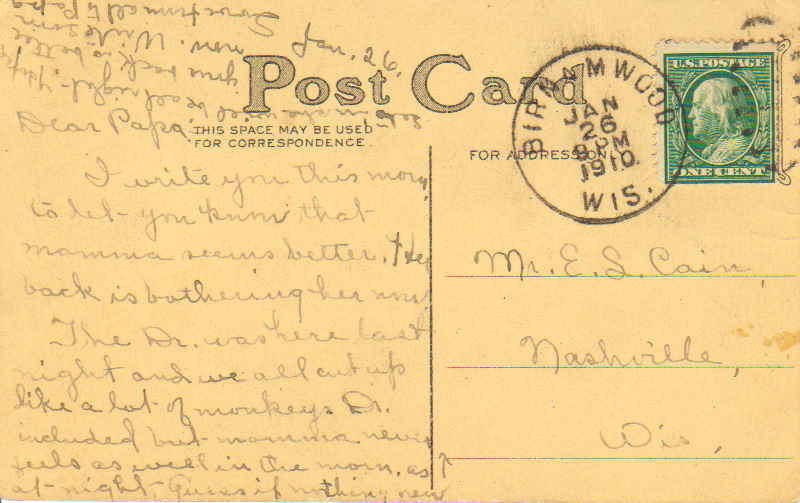 Post Card
THIS SPACE MAY BE USED
FOR CORRESPONDENCE.
FOR ADDRESS ONLY
U.S. POSTAGE
ONE CENT
BIRNAMWOOD
JAN
26
8 PM
1910
WIS.
Jan. 26.
Dear Papa,
I write you this morn
to let you know that
mamma seems better. Her
back is bothering her now.
The Dr. was here last
night and we all cut up
like a lot of monkeys Dr.
included but mamma never
feels as well in the morn. as
at night Guess if nothing new
will be all right. Hope
your back is better
now. Write soon
Love from all to Papa
Mr. E. S. Cain,
Nashville,
Wis.